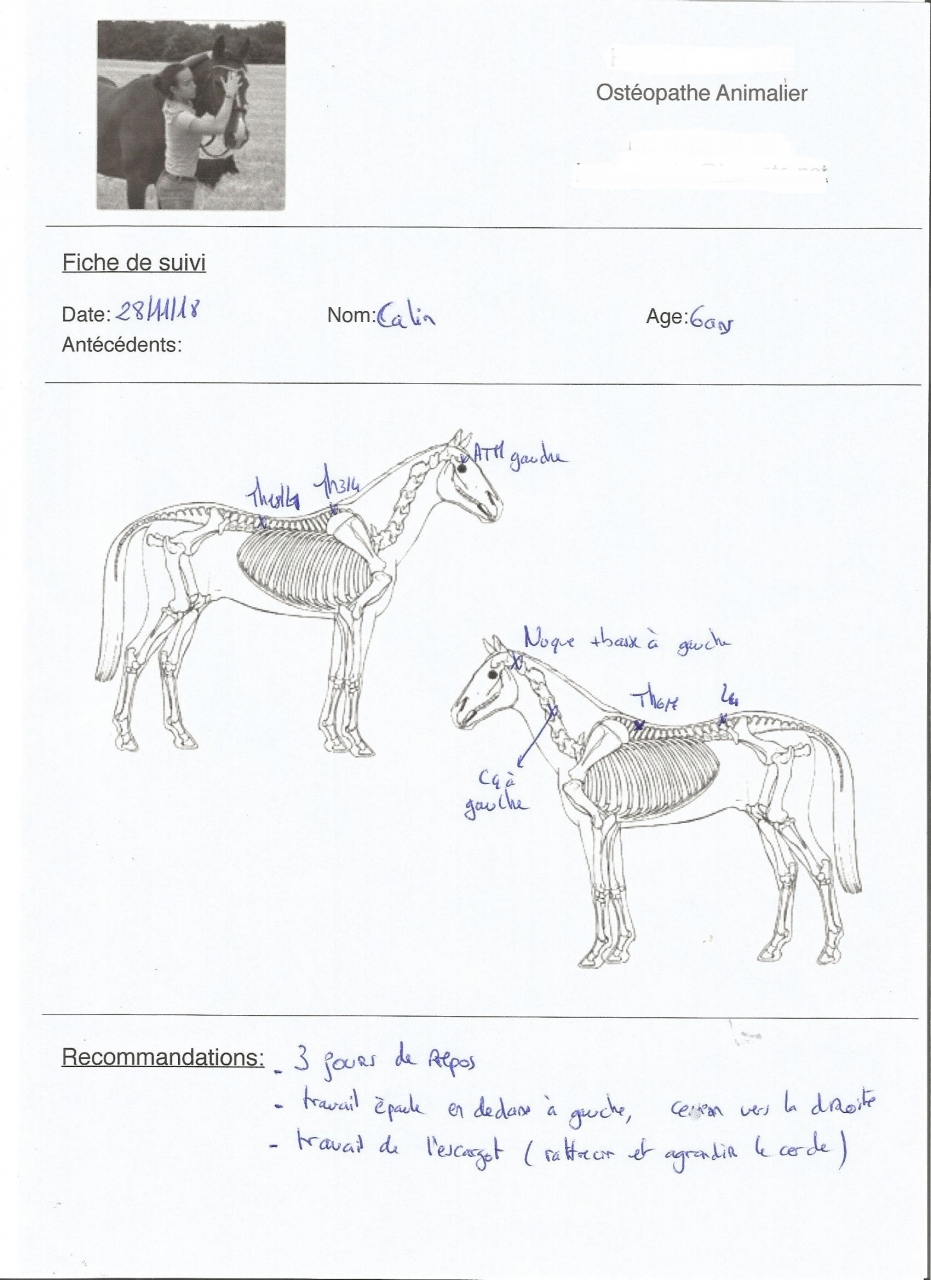 Ostéopathe Animalier
Fiche de suivi
Date: 28/11/18 Nom: Calin Age: 6 ans
Antécédents:
ATM gauche
Th3/4
Nuque + basse à gauche
Th6/7
L4
C4 à
gauche
Recommandations: - 3 jours de Repos
- travail épaule en dedans à gauche, vers la droite
- travail de l'escargot (rattrecir et agrandir le cercle)